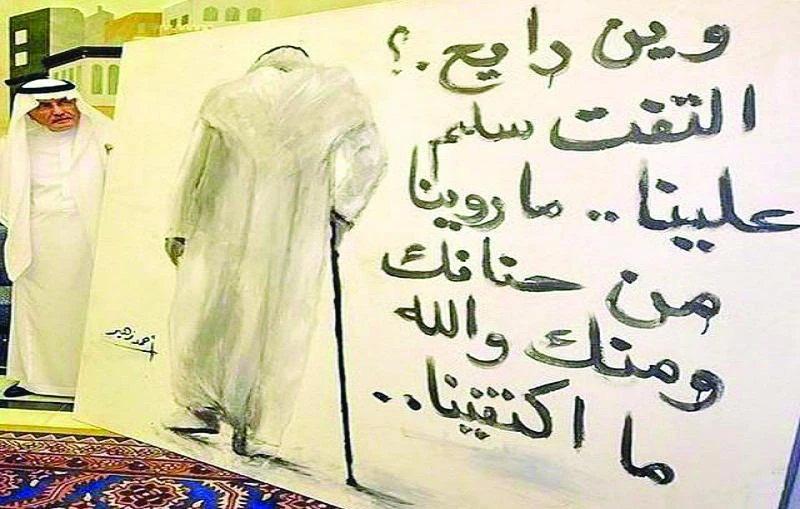 وين رايح .؟
التفت سلم
علينا .. ما روينا
من حنانك
ومنك والله
ما اكتفينا..
أحمد زهير